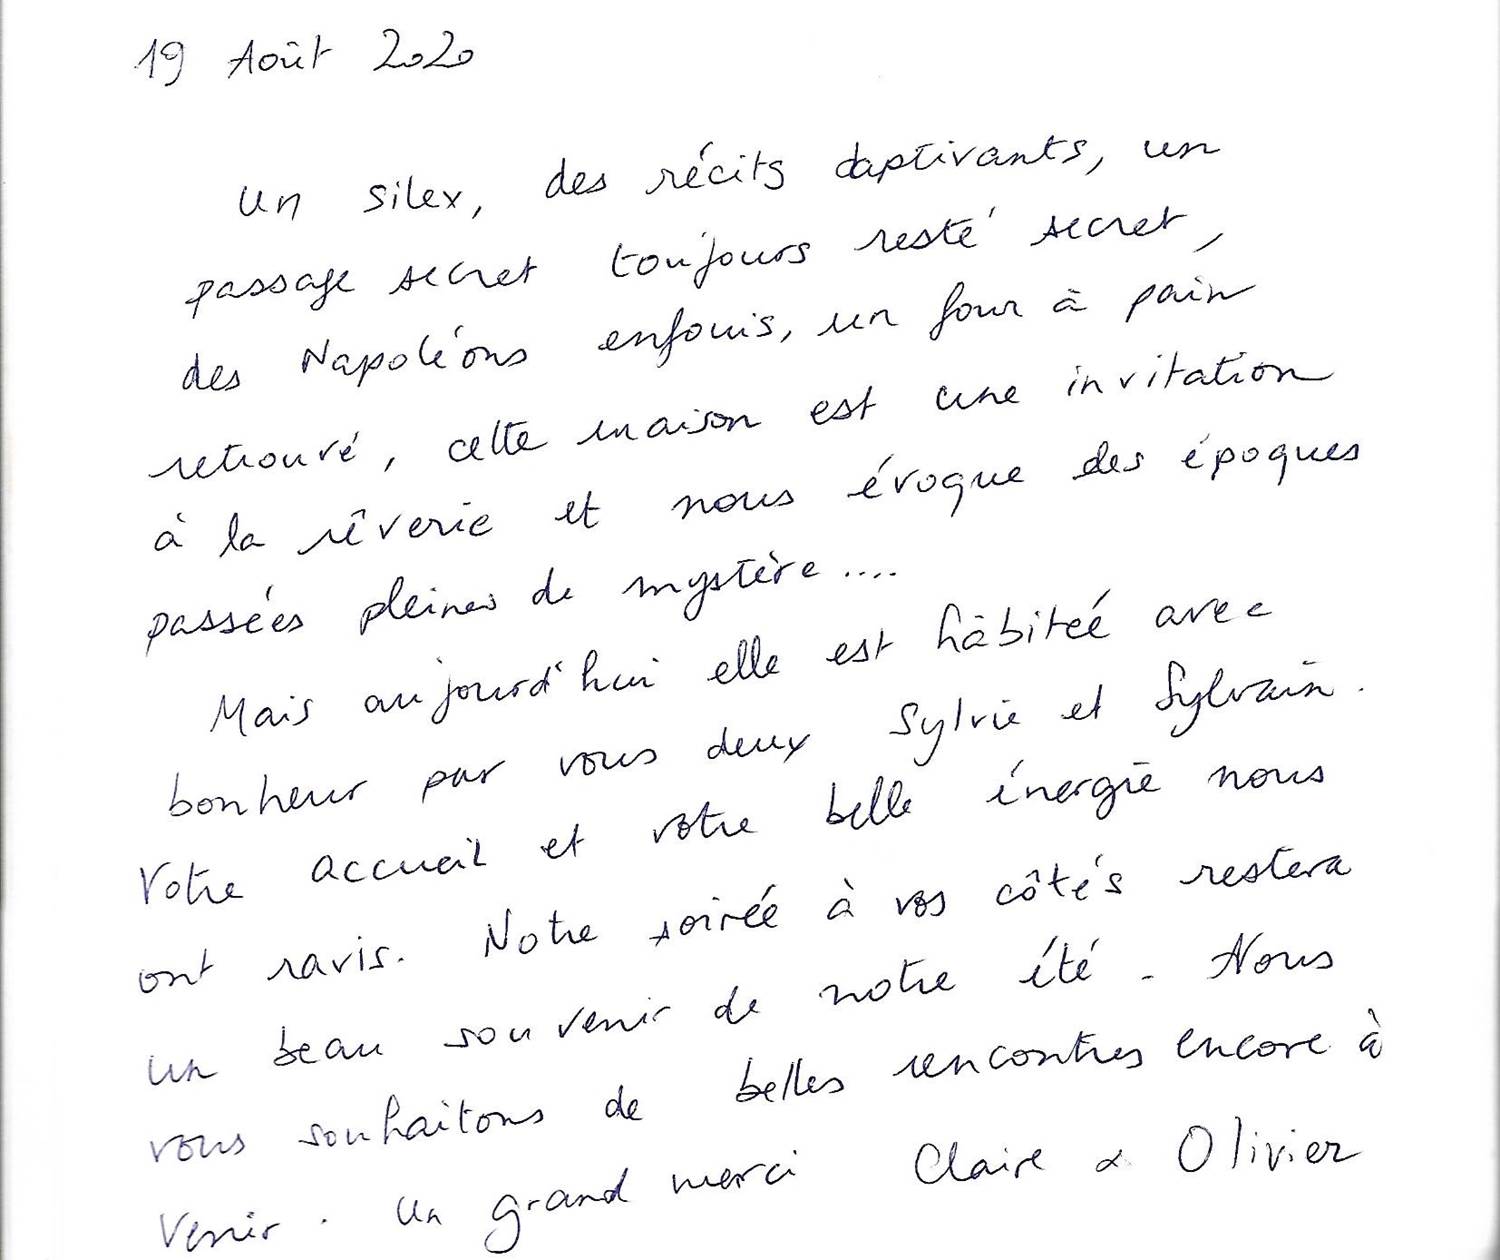 19 Août 2020
Un silex, des récits captivants, un
passage secret toujours resté secret,
des Napoléons enfouis, un four à pain
retrouvé, cette maison est une invitation
à la rêverie et nous évoque des époques
passées pleines de mystère....
Mais aujourd'hui elle est hàbiteé avec
bonheur par vous deux Sylvie et Sylvain.
Votre accueil et votre belle énergie nous
ont ravis. Notre soirée à vos côtés restera
un beau souvenir de notre été. Nous
vous souhaitons de belles rencontres encore à
venir. Un grand merci Claire & Olivier